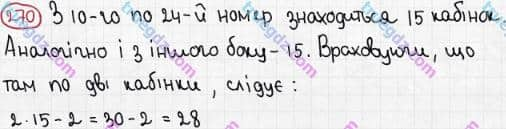 270 З 10-го по 24-й номер знаходиться 15 кабінок
Аналогічно і з іншого боку - 15. Враховуючи, що
там по дві кабінки, слідує:
2·15-2=30-2=28